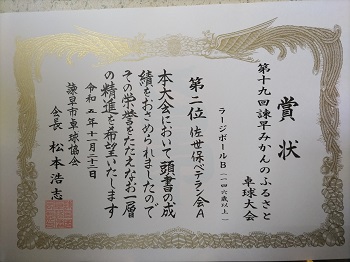 賞状
第十九回諫早みかんのふるさと
卓球大会
ラージボールB(一四六歳以上)
第二位 佐世保ベテラン会A
本大会において頭書の成
績をおさめられましたので
その栄誉をたたえなお一層
の精進を希望いたします
令和五年十一月二十二日
諫早市卓球協会
会長 松本浩志